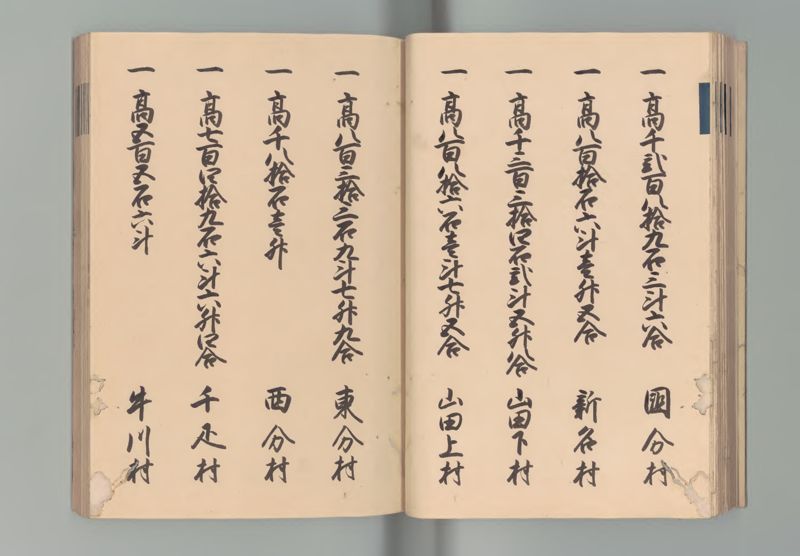 一 高千弐百八拾九石三斗六合 國分村
一 高八百拾石六斗壱升五合 新名村
一 高千三百三拾四石弐斗五升八合 山田下村
一 高八百八拾六石壱斗七升五合 山田上村
一 高八百三拾三石九斗七升九合 東分村
一 高千八拾石壱升 西分村
一 高七百四拾九石六斗六升四合 千疋村
一 高五百五石六斗 牛川村